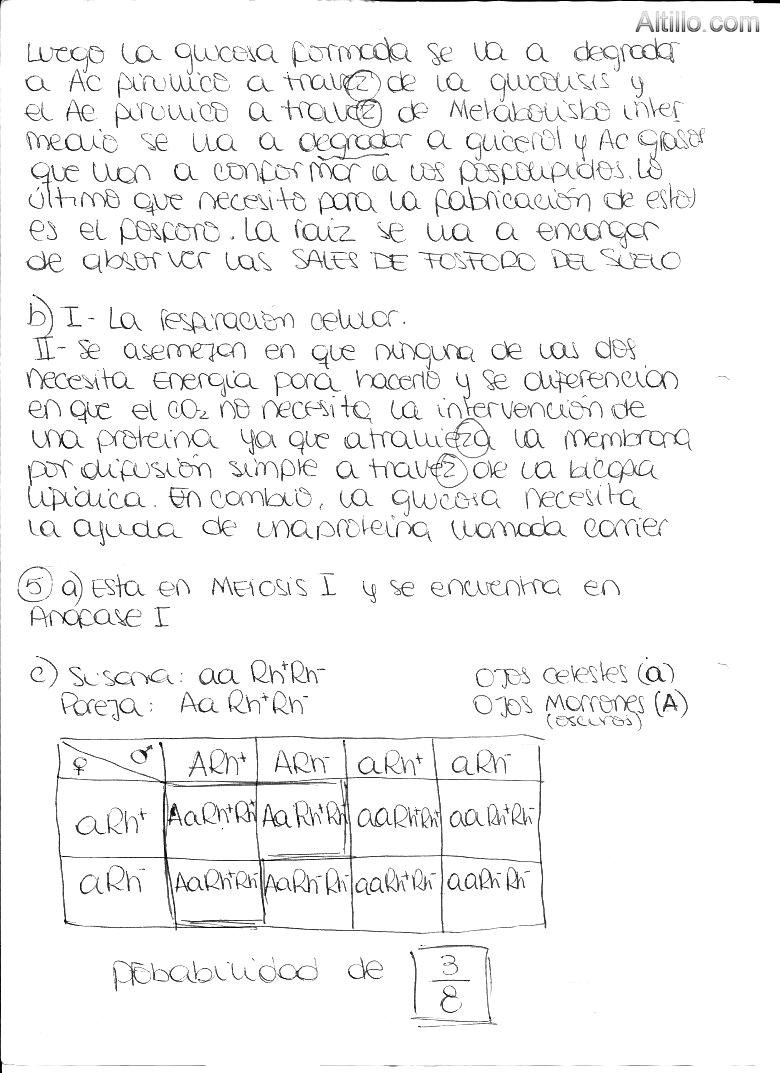 Altillo.com
Luego la glucosa formada se va a degradar
a Ac pirúvico a travez de la glucólisis y
el Ac pirúvico a travez de Metabolismo inter
medio se va a degradar a glicerol y Ac grasos
que van a conformar a los fosfolípidos. Lo
último que necesito para la fabricación de estos
es el fósforo. La raíz se va a encargar
de absorver las SALES DE FOSFORO DEL SUELO
b) I - La respiración celular.
II - Se asemejan en que ninguna de las dos
necesita Energía para hacerlo y se diferencian
en que el CO₂ no necesita la intervención de
una proteína ya que atravieza la membrana
por difusión simple a travez de la bicapa
lipídica. En cambio, la glucosa necesita
la ayuda de una proteína llamada carrier
5 a) Esta en MEIOSIS I y se encuentra en
Anafase I
c) Susana: aa Rh⁺Rh⁻ OJOS celestes (a)
Pareja: Aa Rh⁺Rh⁻ OJOS Marrones (A)
(oscuros)
♀ ♂ ARh⁺ ARh⁻ aRh⁺ aRh⁻
aRh⁺ AaRh⁺Rh⁺ AaRh⁺Rh⁻ aaRh⁺Rh⁺ aaRh⁺Rh⁻
aRh⁻ AaRh⁺Rh⁻ AaRh⁻Rh⁻ aaRh⁺Rh⁻ aaRh⁻Rh⁻
Probabilidad de 3/8